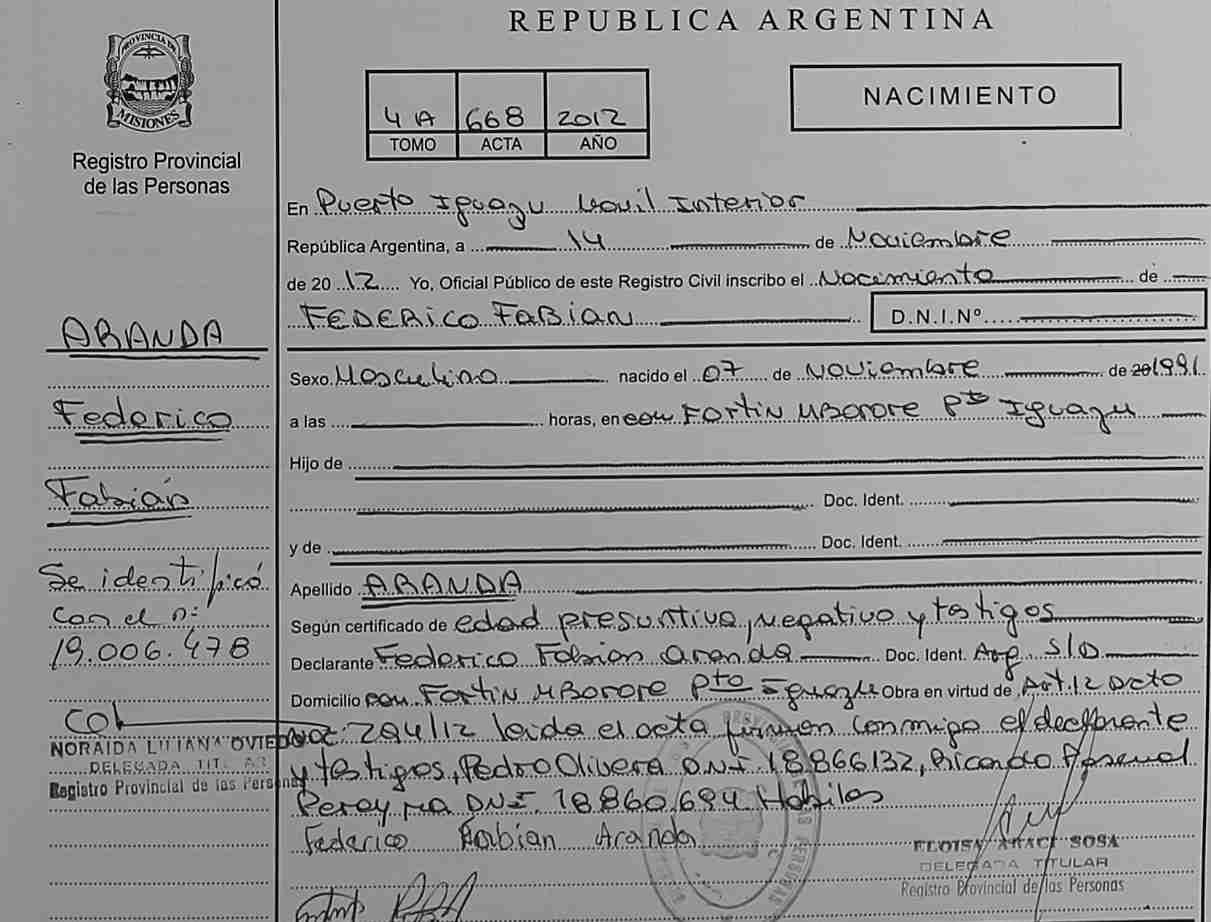 REPUBLICA ARGENTINA
PROVINCIA DE
MISIONES
Registro Provincial
de las Personas
4 A 668 2012
TOMO ACTA AÑO
NACIMIENTO
En Puerto Iguazu Movil Interior
República Argentina, a 14 de Noviembre
de 2012 Yo, Oficial Público de este Registro Civil inscribo el Nacimiento de
FEDERICO FABIAN D.N.I.Nº
Sexo Masculino nacido el 07 de Noviembre de 20 1991
a las horas, en com FORTIN MBORORE Pto Iguazu
Hijo de
Doc. Ident.
y de Doc. Ident.
Apellido ARANDA
Según certificado de edad presuntiva, negativo y testigos
Declarante Federico Fabian Aranda Doc. Ident. Arg. S/D
Domicilio com FORTIN MBORORE Pto Iguazu Obra en virtud de Art. 12 Dcto
294/12 leida el acta firman conmigo el declarante
y testigos, Pedro Olivera DNI 18.866132, Ricardo
DNI. 18.860.694 Habiles
Federico Fabian Aranda
ARANDA
Federico
Fabián
Se identificó
con el nº
19.006.478
NORAIDA LILIANA OVIEDO
DELEGADA TIT
Registro Provincial de las Personas
ELOISA ARACI SOSA
DELEGADA TITULAR
Registro Provincial de las Personas